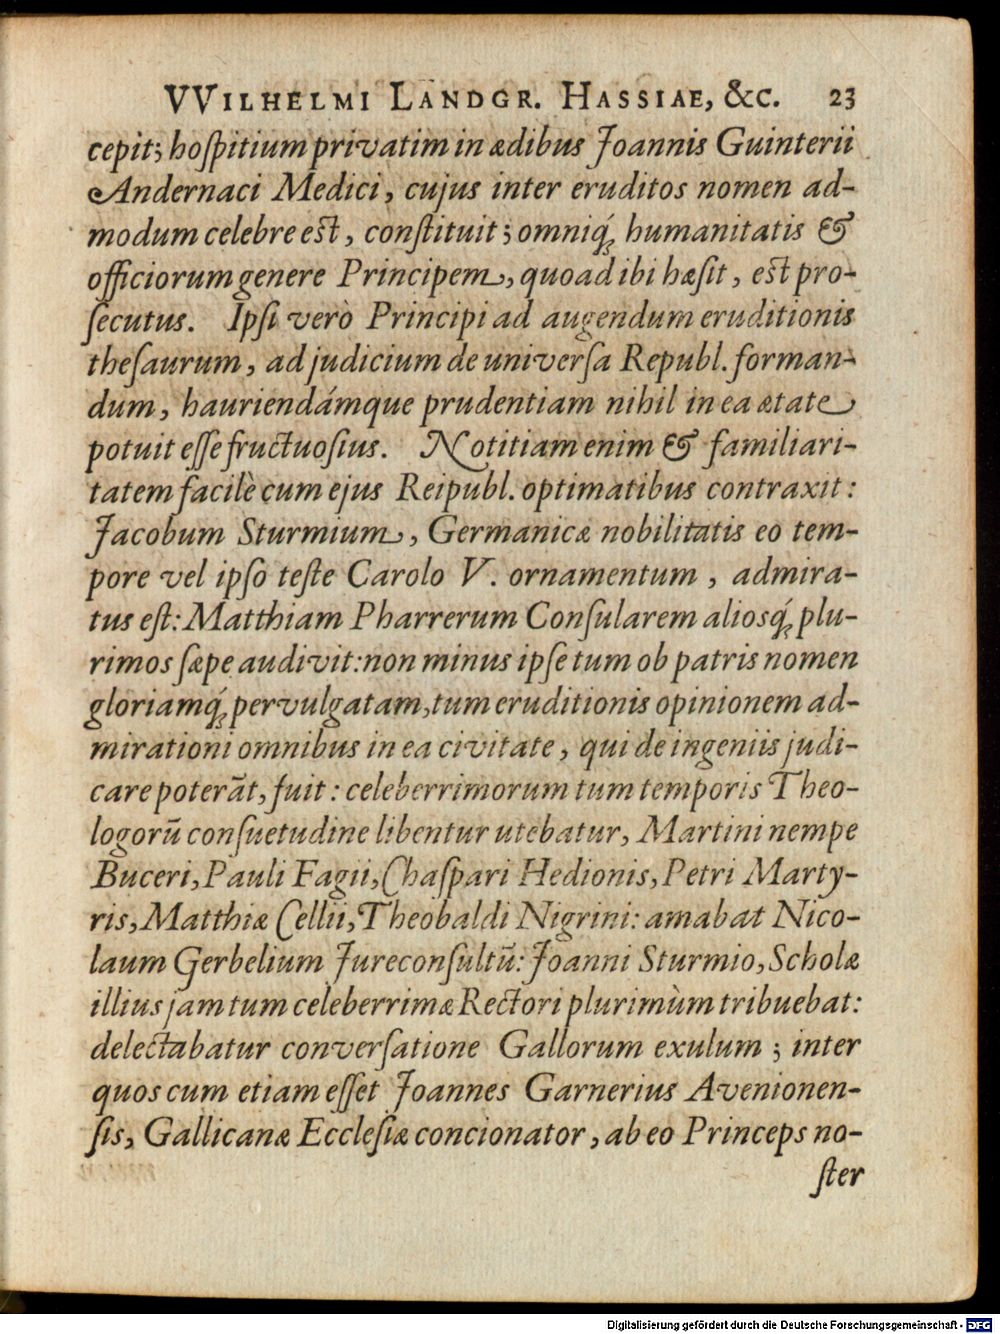 VVILHELMI LANDGR. HASSIAE, &c. 23
cepit; hoſpitium privatim in ædibus Joannis Guinterii
Andernaci Medici, cujus inter eruditos nomen ad-
modum celebre est, conſtituit; omniq́; humanitatis &
officiorum genere Principem, quoad ibi hæſit, est pro-
ſecutus. Ipſi verò Principi ad augendum eruditionis
theſaurum, ad judicium de univerſa Republ. forman-
dum, hauriendámque prudentiam nihil in ea ætate
potuit eſſe fructuoſius. Notitiam enim & familiari-
tatem facilè cum ejus Reipubl. optimatibus contraxit:
Jacobum Sturmium, Germanicæ nobilitatis eo tem-
pore vel ipſo teſte Carolo V. ornamentum, admira-
tus eſt: Matthiam Pharrerum Conſularem alioſq́; plu-
rimos ſæpe audivit: non minus ipſe tum ob patris nomen
gloriamq́; pervulgatam, tum eruditionis opinionem ad-
mirationi omnibus in ea civitate, qui de ingeniis judi-
care poterāt, fuit: celeberrimorum tum temporis Theo-
logorū conſuetudine libentur utebatur, Martini nempe
Buceri, Pauli Fagii, Chaſpari Hedionis, Petri Marty-
ris, Matthiæ Cellii, Theobaldi Nigrini: amabat Nico-
laum Gerbelium Jureconſultū: Joanni Sturmio, Scholæ
illius jam tum celeberrimæ Rectori plurimùm tribuebat:
delectabatur converſatione Gallorum exulum; inter
quos cum etiam eſſet Joannes Garnerius Avenionen-
ſis, Gallicanæ Eccleſiæ concionator, ab eo Princeps no-
ſter
Digitalisierung gefördert durch die Deutsche Forschungsgemeinschaft - DFG